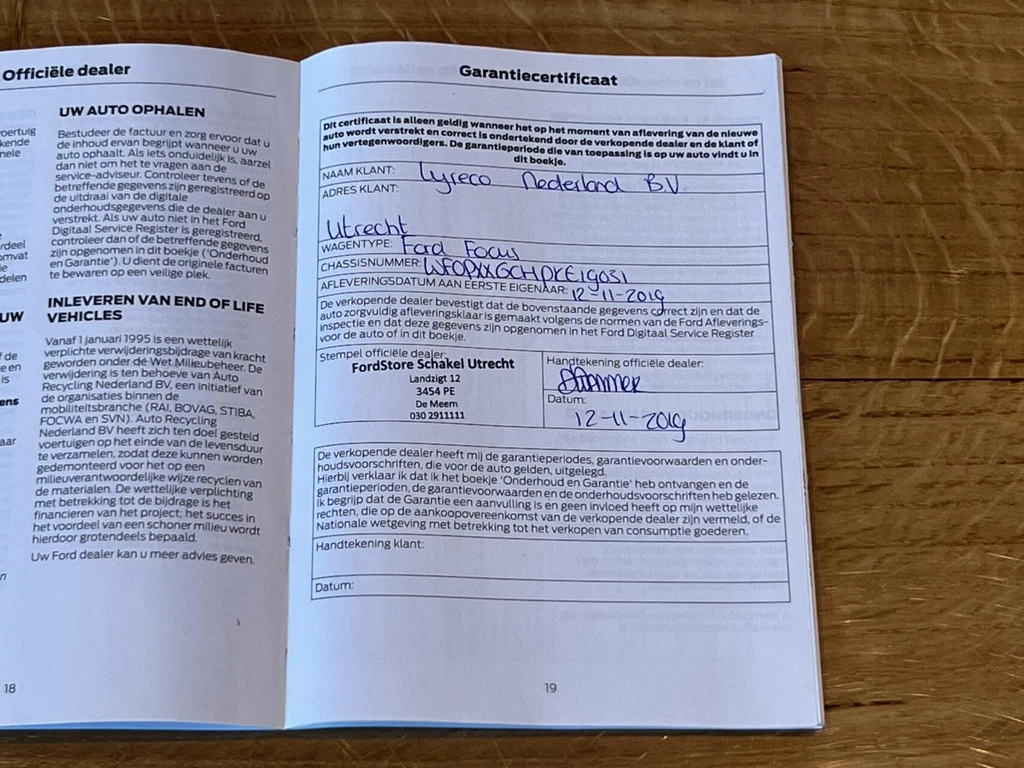 Officiële dealer
oertuig
kende
nele
rdeel
omvat
ie
delen
UW
f de
e en
is
ens
aar
n
UW AUTO OPHALEN
Bestudeer de factuur en zorg ervoor dat u
de inhoud ervan begrijpt wanneer u uw
auto ophaalt. Als iets onduidelijk is, aarzel
dan niet om het te vragen aan de
service-adviseur. Controleer tevens of de
betreffende gegevens zijn geregistreerd op
de uitdraai van de digitale
onderhoudsgegevens die de dealer aan u
verstrekt. Als uw auto niet in het Ford
Digitaal Service Register is geregistreerd,
controleer dan of de betreffende gegevens
zijn opgenomen in dit boekje ('Onderhoud
en Garantie'). U dient de originele facturen
te bewaren op een veilige plek.
INLEVEREN VAN END OF LIFE
VEHICLES
Vanaf 1 januari 1995 is een wettelijk
verplichte verwijderingsbijdrage van kracht
geworden onder de Wet Milieubeheer. De
verwijdering is ten behoeve van Auto
Recycling Nederland BV, een initiatief van
de organisaties binnen de
mobiliteitsbranche (RAI, BOVAG, STIBA,
FOCWA en SVN). Auto Recycling
Nederland BV heeft zich ten doel gesteld
voertuigen op het einde van de levensduur
te verzamelen, zodat deze kunnen worden
gedemonteerd voor het op een
milieuverantwoordelijke wijze recyclen van
de materialen. De wettelijke verplichting
met betrekking tot de bijdrage is het
financieren van het project; het succes in
het voordeel van een schoner milieu wordt
hierdoor grotendeels bepaald.
Uw Ford dealer kan u meer advies geven.
18
Garantiecertificaat
Dit certificaat is alleen geldig wanneer het op het moment van aflevering van de nieuwe
auto wordt verstrekt en correct is ondertekend door de verkopende dealer en de klant of
hun vertegenwoordigers. De garantieperiode die van toepassing is op uw auto vindt u in
dit boekje.
NAAM KLANT: Lyreco Nederland B.V.
ADRES KLANT:
Utrecht
WAGENTYPE: Ford Focus
CHASSISNUMMER: WF0PXXGCHPKE19031
AFLEVERINGSDATUM AAN EERSTE EIGENAAR: 12-11-2019
De verkopende dealer bevestigt dat de bovenstaande gegevens correct zijn en dat de
auto zorgvuldig afleveringsklaar is gemaakt volgens de normen van de Ford Afleverings-
inspectie en dat deze gegevens zijn opgenomen in het Ford Digitaal Service Register
voor de auto of in dit boekje.
Stempel officiële dealer:
FordStore Schakel Utrecht
Landzigt 12
3454 PE
De Meern
030 2911111
Handtekening officiële dealer:
Datum:
12-11-2019
De verkopende dealer heeft mij de garantieperiodes, garantievoorwaarden en onder-
houdsvoorschriften, die voor de auto gelden, uitgelegd.
Hierbij verklaar ik dat ik het boekje 'Onderhoud en Garantie' heb ontvangen en de
garantieperioden, de garantievoorwaarden en de onderhoudsvoorschriften heb gelezen.
Ik begrijp dat de Garantie een aanvulling is en geen invloed heeft op mijn wettelijke
rechten, die op de aankoopovereenkomst van de verkopende dealer zijn vermeld, of de
Nationale wetgeving met betrekking tot het verkopen van consumptie goederen.
Handtekening klant:
Datum:
19